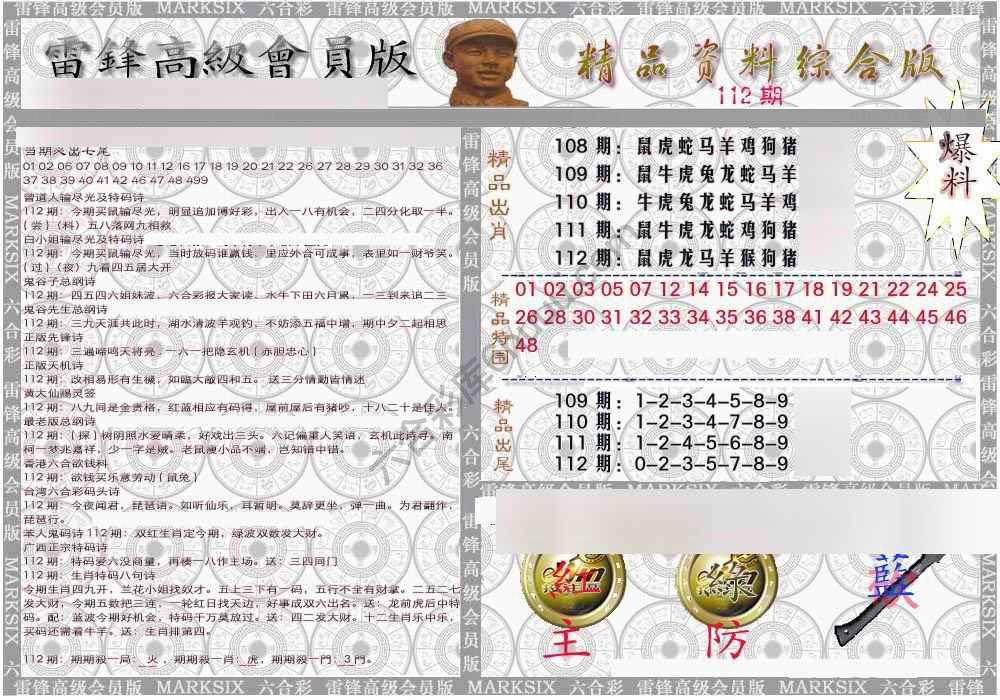 雷锋高级会员版 MARKSIX 六合彩 雷锋高级会员版 MARKSIX 六合彩 雷锋高级会员版 MARKSIX 六合彩
雷鋒高級會員版
精品资料综合版
112 期
爆料
01 02 06 07 08 09 10 11 12 16 17 18 19 20 21 22 26 27 28 29 30 31 32 36
37 38 39 40 41 42 46 47 48 499
曾道人输尽光及特码诗
112 期：今期买鼠输尽光，明显追加博好彩，出入一八有机会，二四分化取一半。
{尝}（料）五八落网九相救
白小姐输尽光及特码诗
112 期：今期买鼠输尽光，当时放码谁赢钱，里应外合可成事，表里如一财爷笑。
{过}（夜）九看四五居大开
鬼谷子总纲诗
112 期：四五四六姐妹波，六合彩报大家读，水牛下田六月累，一三到来追二三
鬼谷先生总纲诗
112 期：三九天涯共此时，湖水清波羊观钓，不奶添五福中增，期中夕二起相思
正版先锋诗
112 期：三遍啼鸣天将亮，一六一把隐玄机{赤胆忠心}
正版天机诗
112 期：改相易形有生機，如臨大敵四和五。送三分情勤皆情迷
黄大仙赐灵签
112 期：八九同是金贵格，红蓝相应有码得，屋前屋后有猪吵，十八二十是佳人。
最老版总纲诗
112 期：{探}树阴照水爱晴柔，好戏出三头。六记偏重人笑语，玄机此诗寻。南
柯一梦兆嘉祥，少一字是贼。老鼠搜小品不端，岂知错中错。
香港六合欲钱料
112 期：欲钱买乐意劳动{鼠兔}
台湾六合彩码头诗
112 期：今夜闻君，琵琶语。如听仙乐，耳暂明。莫辞更坐，弹一曲。为君翻作，
琵琶行。
本人鬼码诗 112 期：双红生肖定今期，绿波双数发大财。
广西正宗特码诗
112 期：特码爱六没商量，再楼一八作主场。送：三四同门
112 期：生肖特码八句诗
今期生肖四九开，兰花小姐找奴才。五上三下有一码，五行不全有财拿。二五二七
发大财，今期五数把三连，一轮红日找天边，好事成双六出名。送：龙前虎后中特
码。配：蓝波今期好机会，特码千万莫放过。送：四二发大财。十二生肖乐中乐，
买码还需看牛羊。送：生肖排第四。
112 期：期期殺一局：火，期期殺一肖：虎，期期殺一門：3 門。
精品出肖
108 期：鼠虎蛇马羊鸡狗猪
109 期：鼠牛虎兔龙蛇马羊
110 期：牛虎兔龙蛇马羊鸡
111 期：鼠牛虎龙蛇鸡狗猪
112 期：鼠虎龙马羊猴狗猪
精品特围
01 02 03 05 07 12 14 15 16 17 18 19 21 22 24 25
26 28 30 31 32 33 34 35 36 38 41 42 43 44 45 46
48
精品出尾
109 期：1-2-3-4-5-8-9
110 期：1-2-3-4-7-8-9
111 期：1-2-4-5-6-8-9
112 期：0-2-3-5-7-8-9
主
防
雷锋高级会员版 MARKSIX 六合彩 雷锋高级会员版 MARKSIX 六合彩 雷锋高级会员版 MARKSIX 六合彩